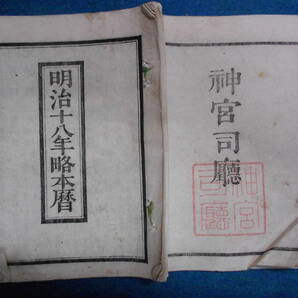 明治十八年略本暦
神宮司廳
神宮
司廳